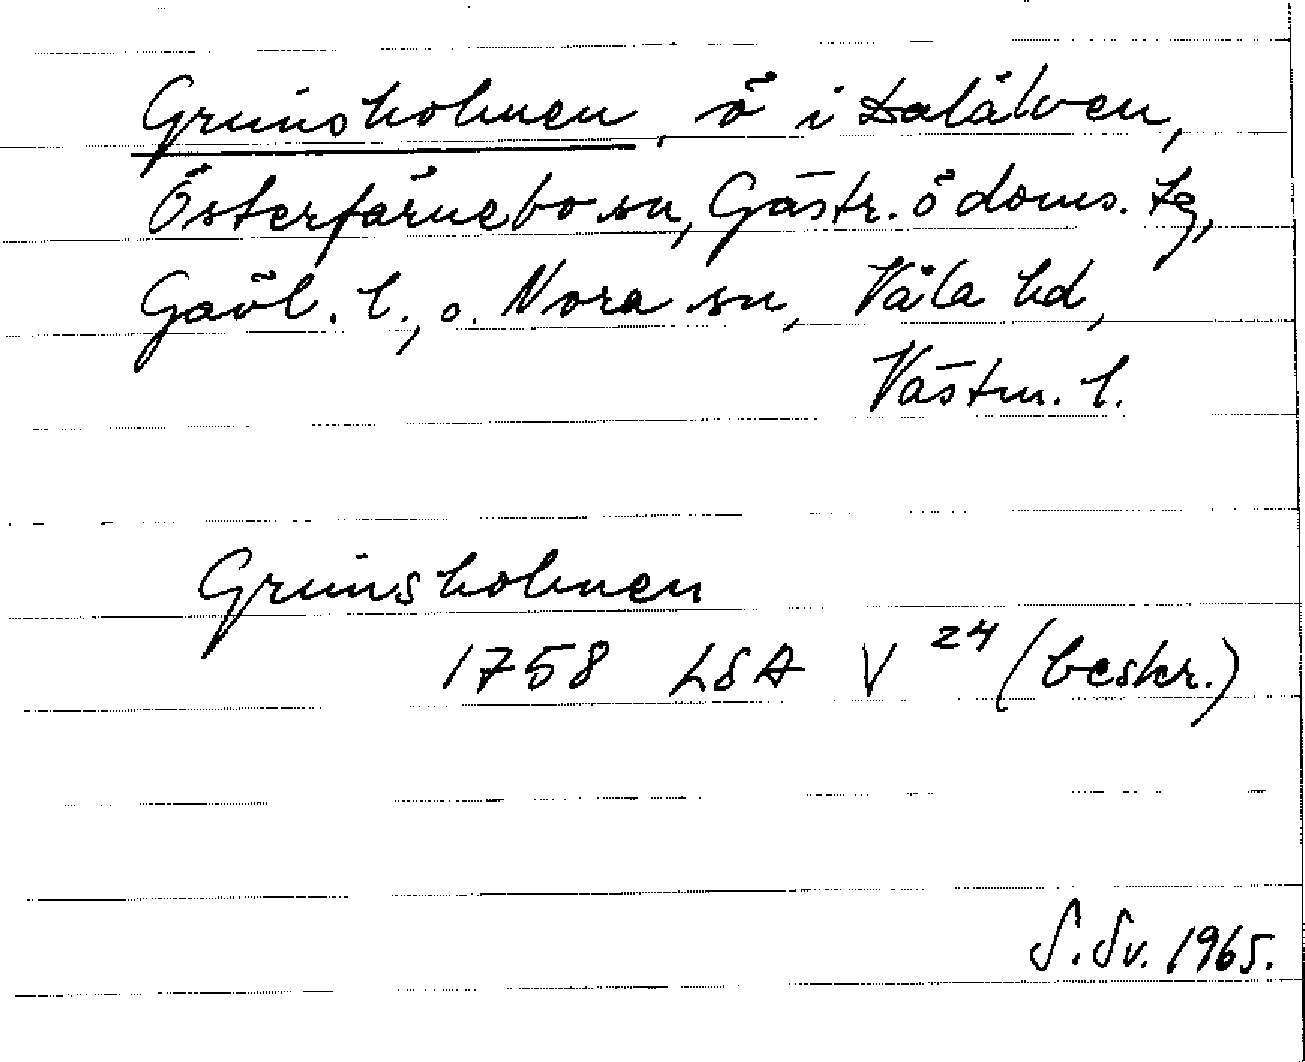 Grimsholmen, ö i Dalälven,
Österfärnebo sn, Gästr. ö doms. tg,
Gävl. l., o. Nora sn, Våla hd,
Västm. l.
Grimsholmen
1758 LSA V 24 (beskr.)
S. Sv. 1965.